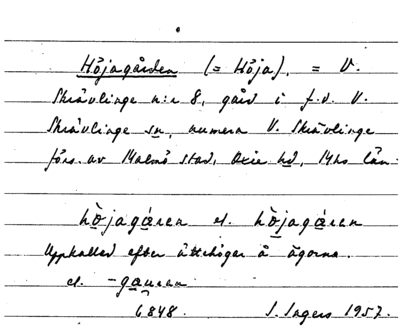 Höjagården (= Höja), = V.
Skrävlinge n:r 8, gård i f.d. V.
Skrävlinge sn, numera V. Skrävlinge
förs. av Malmö stad, Oxie hd, Mhs län.
hòjagáren el. hòjagáren
Uppkallad efter ättehögar å ägorna.
el. -gauran
6848. I. Ingers 1957.